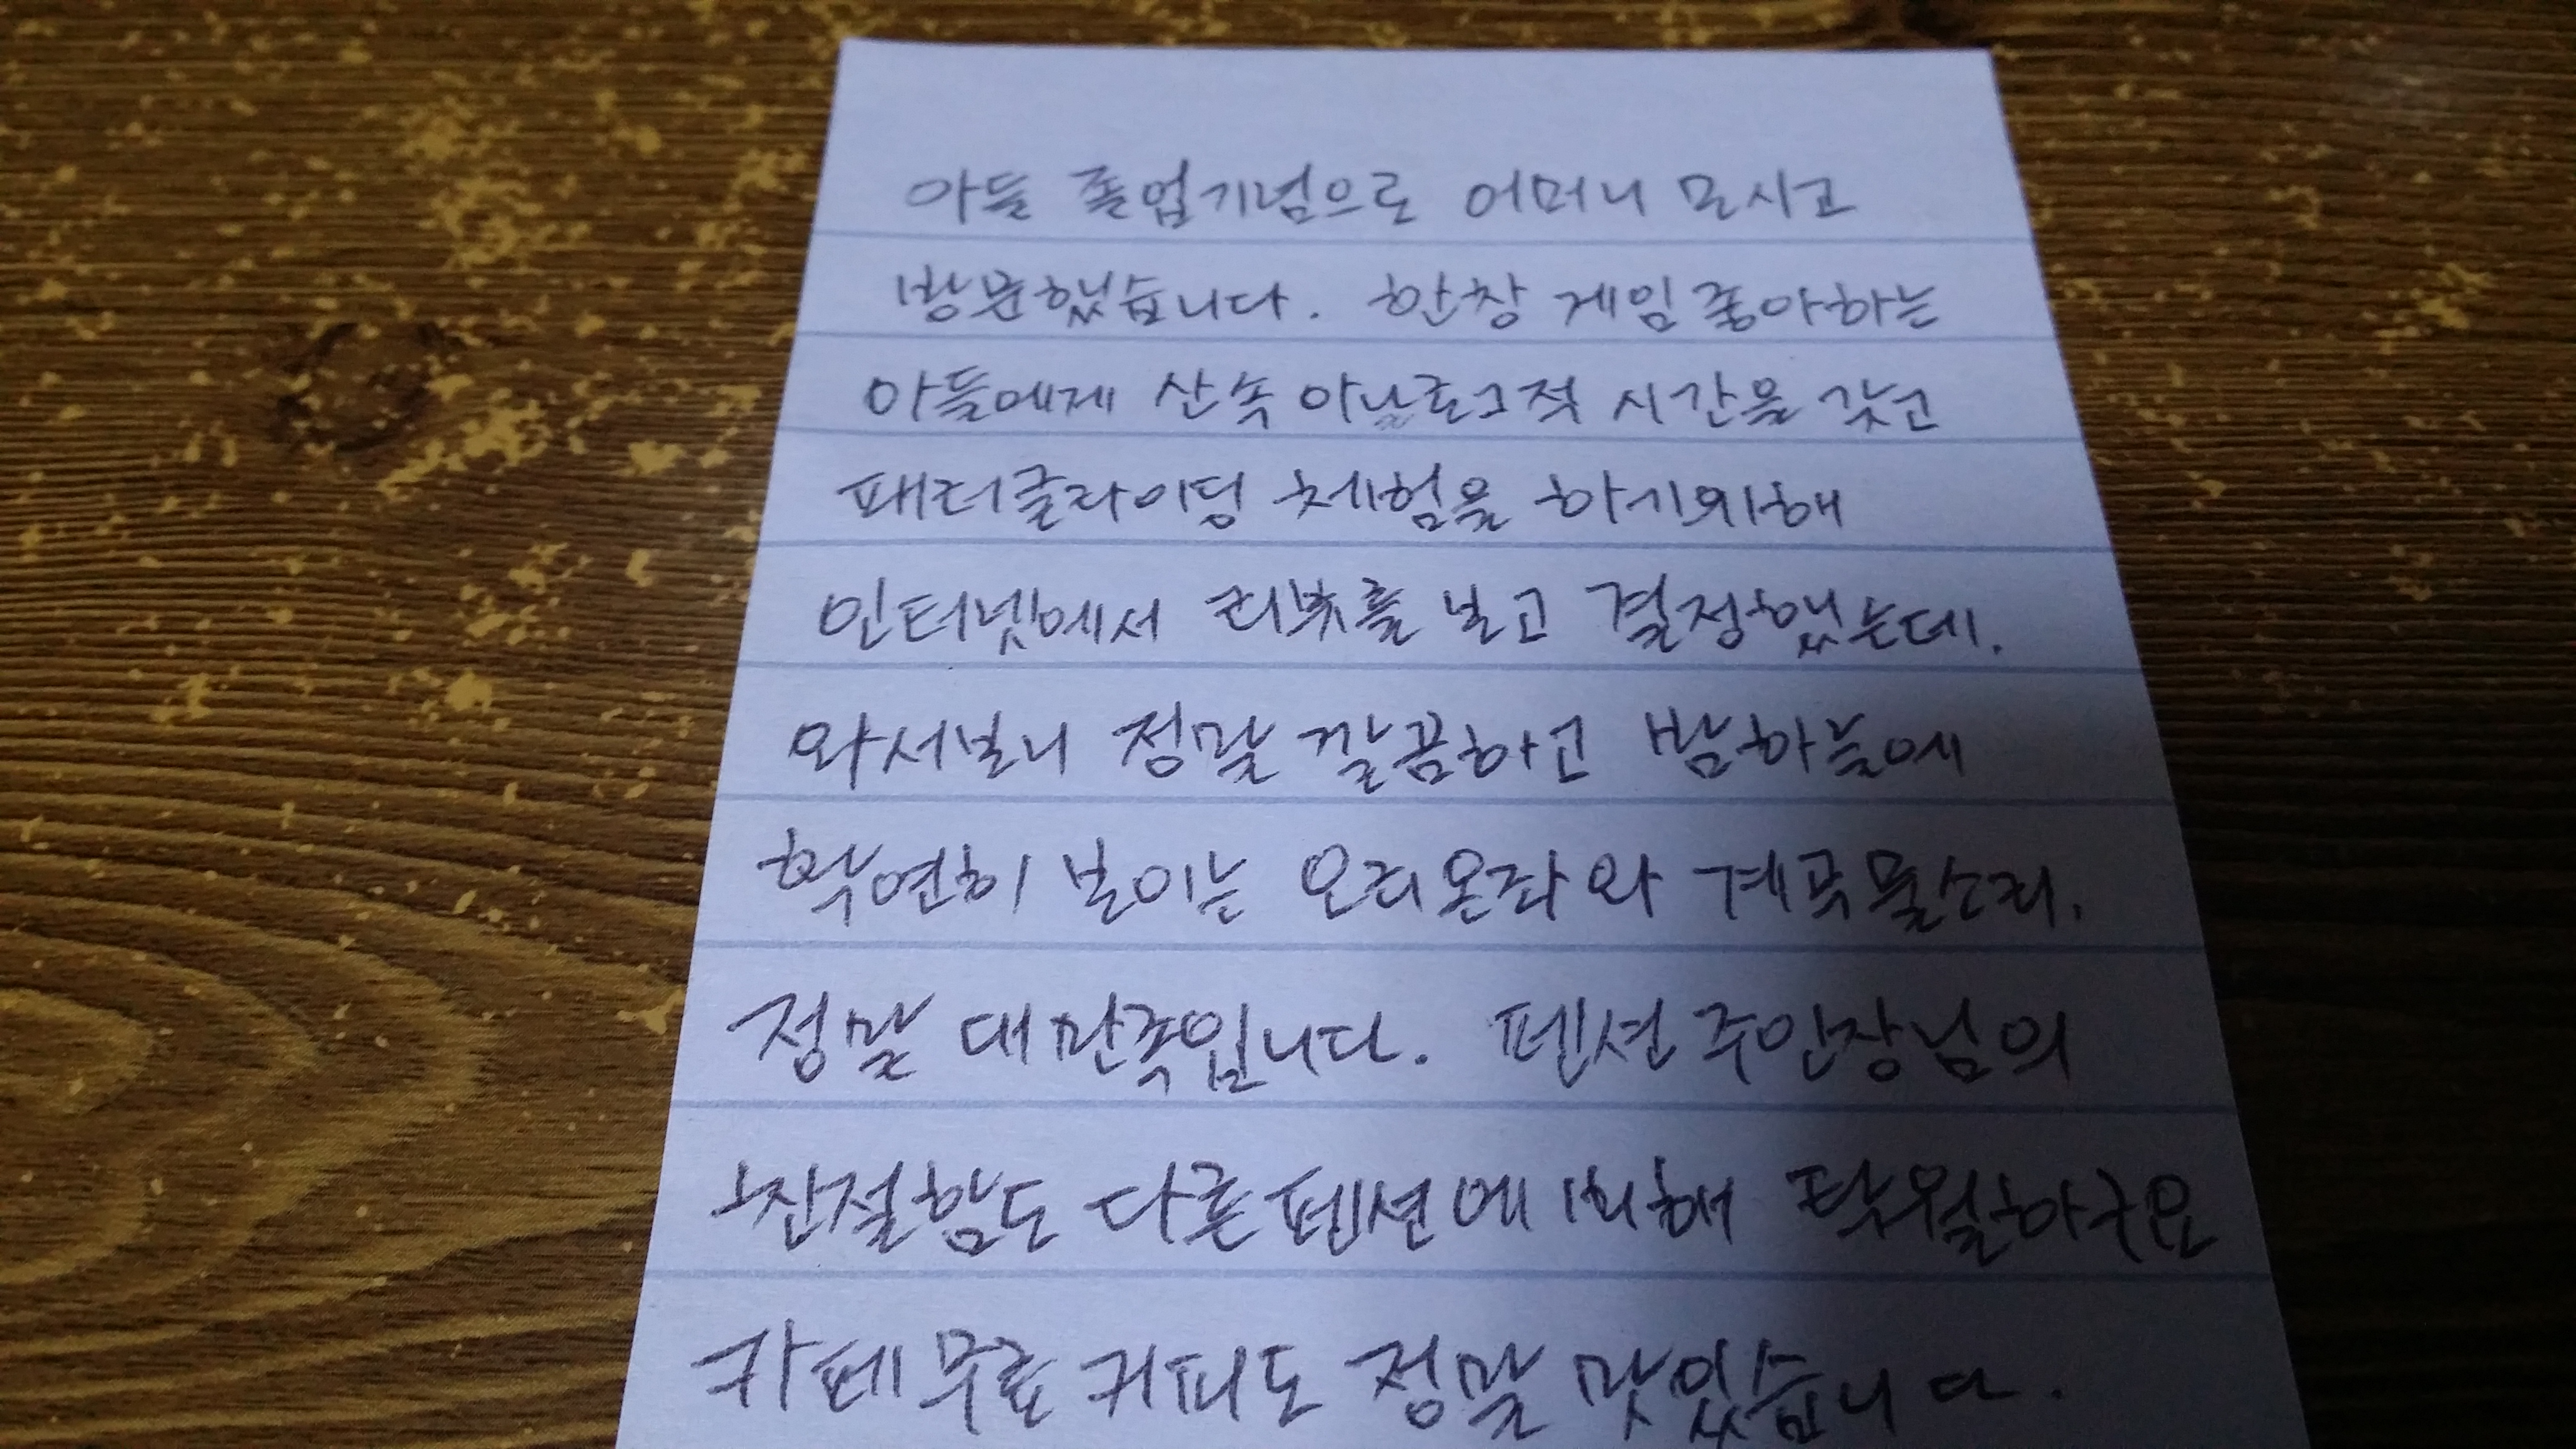 아들 졸업기념으로 어머니 모시고
방문했습니다. 한창 게임 좋아하는
아들에게 산속 아날로그적 시간을 갖고
패러글라이딩 체험을 하기위해
인터넷에서 리뷰를 보고 결정했는데.
와서보니 정말 깔끔하고 밤하늘에
확연히 보이는 오리온좌와 계곡물소리.
정말 대만족입니다. 펜션 주인장님의
친절함도 다른펜션에 비해 탁월하구요
카페 무료 커피도 정말 맛있습니다.